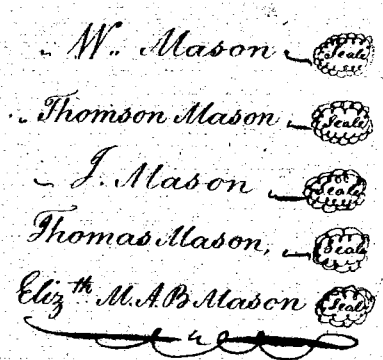 W. Mason Seal
Thomson Mason Seal
J. Mason Seal
Thomas Mason, Seal
Eliz th M. A. B Mason Seal